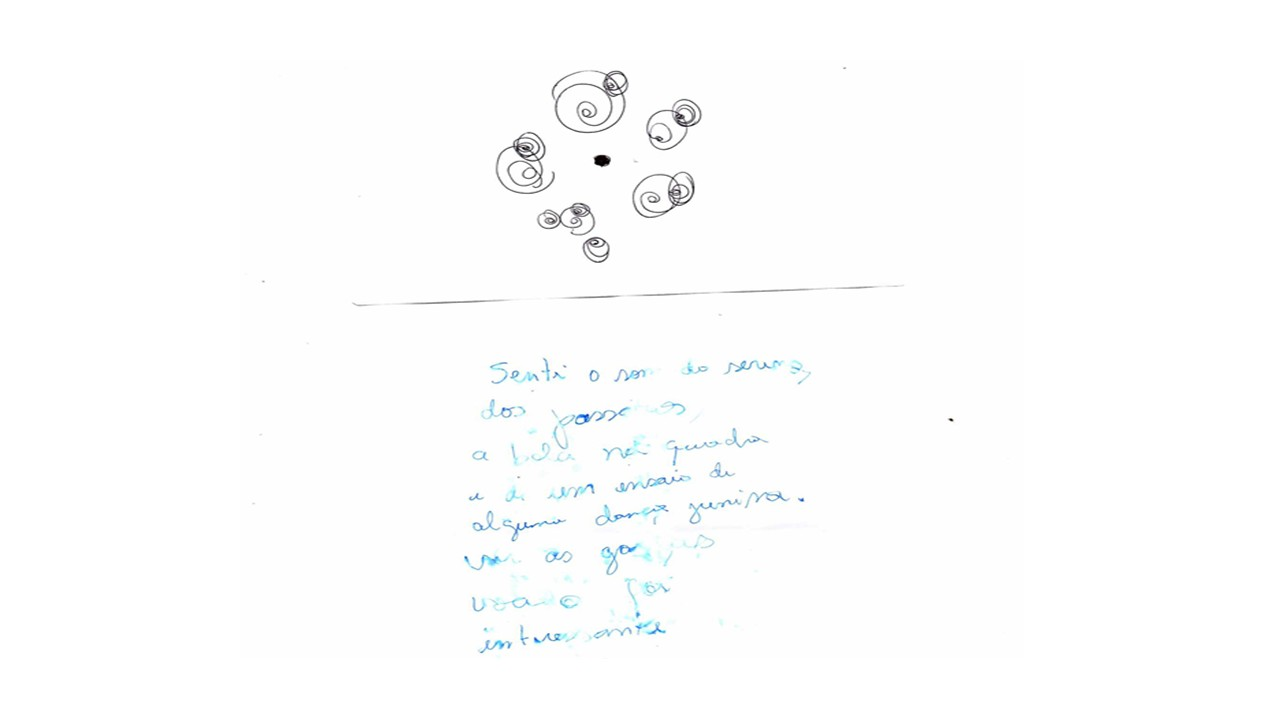 Senti o som do sereno,
dos pássaros,
a bola na quadra
e de um ensaio de
alguma dança junina.
ver as garças
voando foi
interessante